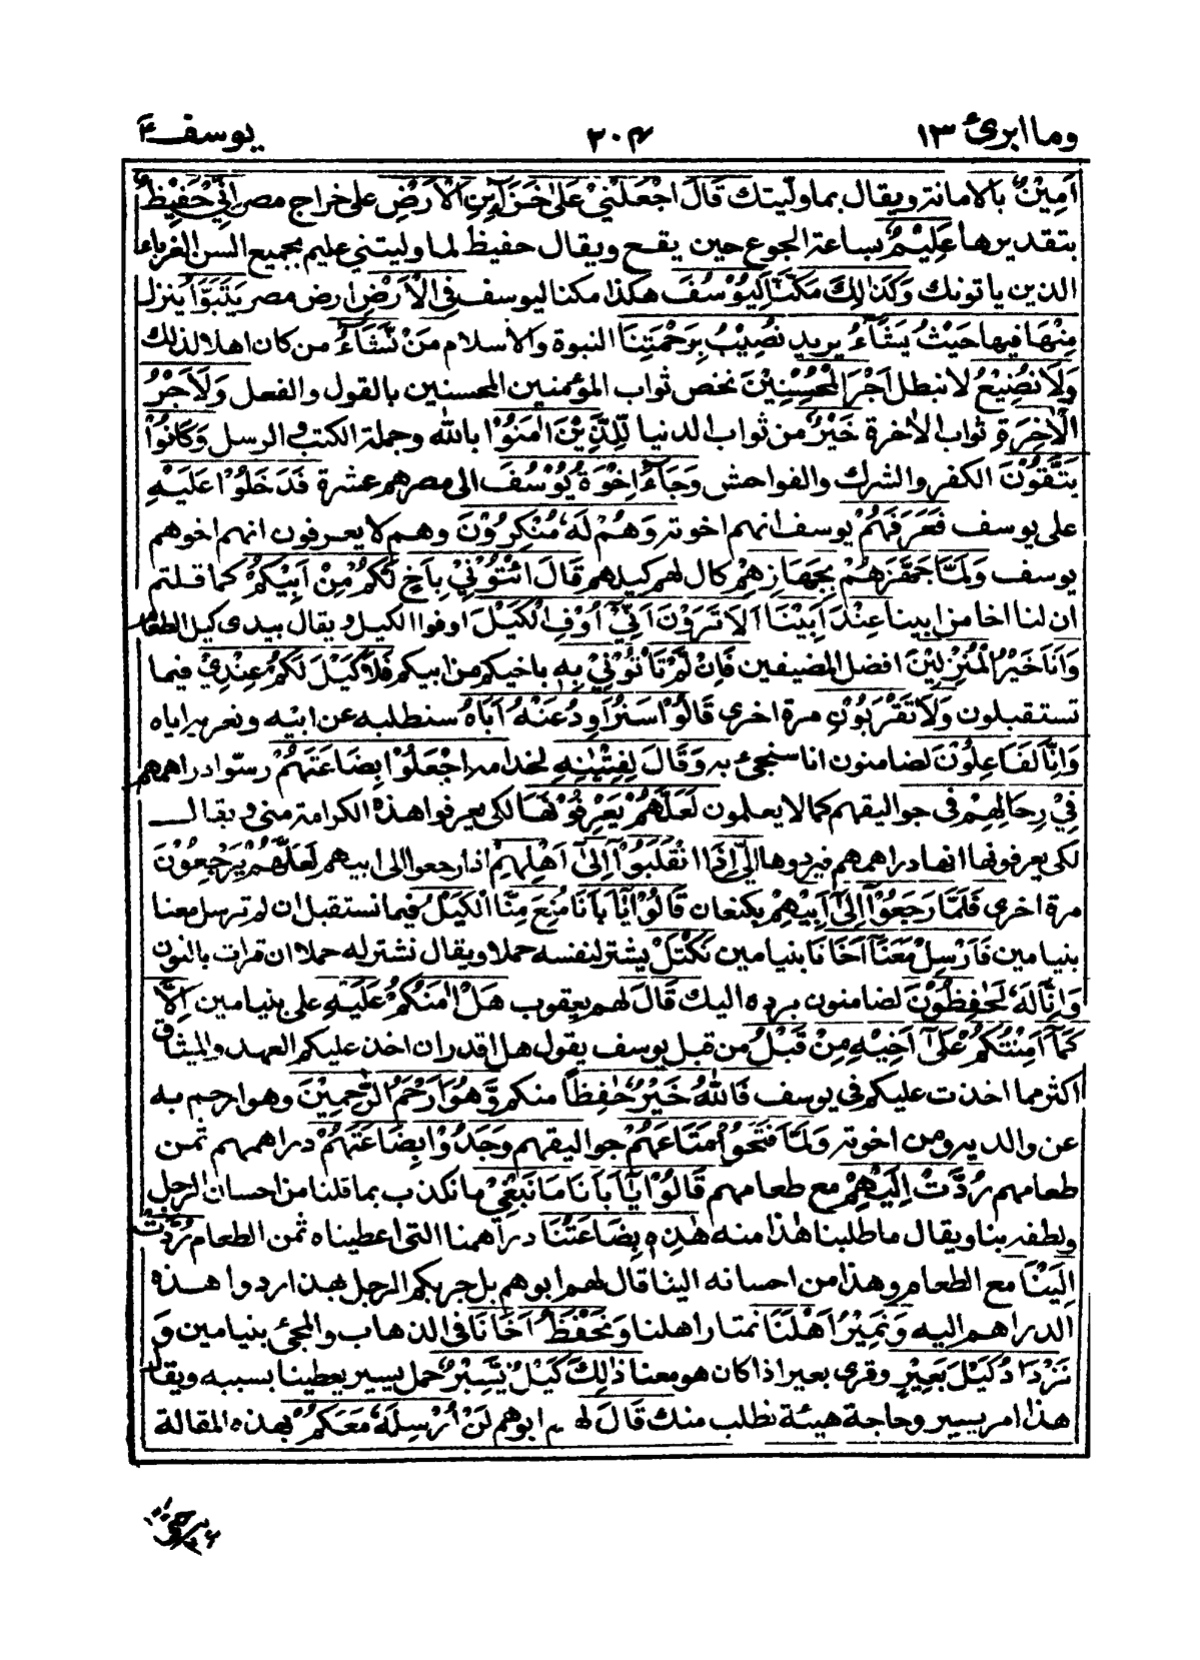 وما ابرئ ١٣ ٢٠٤ يوسف
اَمِيْنٌ بالامانة ويقال بما وليتك قَالَ اجْعَلْنِيْ عَلٰى خَزَآئِنِ الْاَرْضِ على خراج مصر اِنِّيْ حَفِيْظٌ
بتقديرها عَلِيْمٌ بساعة الجوع حين يقع ويقال حفيظ لما وليتني عليم بجميع السن الغرباء
الذين ياتونك وَكَذٰلِكَ مَكَّنَّا لِيُوْسُفَ هكذا مكنا ليوسف فِي الْاَرْضِ ارض مصر يَتَبَوَّاُ ينزل
مِنْهَا فيها حَيْثُ يَشَآءُ يريد نُصِيْبُ بِرَحْمَتِنَا النبوة والاسلام مَنْ نَّشَآءُ من كان اهلا لذلك
وَلَا نُضِيْعُ لا نبطل اَجْرَ الْمُحْسِنِيْنَ نخص ثواب المؤمنين المحسنين بالقول والفعل وَلَاَجْرُ
الْاٰخِرَةِ ثواب الاخرة خَيْرٌ من ثواب الدنيا لِّلَّذِيْنَ اٰمَنُوْا بالله وجملة الكتب والرسل وَكَانُوْا
يَتَّقُوْنَ الكفر والشرك والفواحش وَجَآءَ اِخْوَةُ يُوْسُفَ الى مصر هم عشرة فَدَخَلُوْا عَلَيْهِ
على يوسف فَعَرَفَهُمْ يوسف انهم اخوته وَهُمْ لَهٗ مُنْكِرُوْنَ وهم لا يعرفون انهم اخوهم
يوسف وَلَمَّا جَهَّزَهُمْ بِجَهَازِهِمْ كال لهم كيلهم قَالَ ائْتُوْنِيْ بِاَخٍ لَّكُمْ مِّنْ اَبِيْكُمْ كما قلتم
ان لنا اخا من ابينا عِنْدَ اَبِيْنَا اَلَا تَرَوْنَ اَنِّيْ اُوْفِ الْكَيْلَ اوفوا الكيل ويقال بيدى كيل الطعام
وَاَنَا خَيْرُ الْمُنْزِلِيْنَ افضل المضيفين فَاِنْ لَّمْ تَاْتُوْنِيْ بِهٖ باخيكم من ابيكم فَلَا كَيْلَ لَكُمْ عِنْدِيْ فيما
تستقبلون وَلَا تَقْرَبُوْنِ مرة اخرى قَالُوْا سَنُرَاوِدُ عَنْهُ اَبَاهُ سنطلبه عن ابيه ونغريه اياه
وَاِنَّا لَفَاعِلُوْنَ لضامنون انا سنجئ به وَقَالَ لِفِتْيٰنِهِ لخدامه اجْعَلُوْا بِضَاعَتَهُمْ رسوا دراهمهم
فِيْ رِحَالِهِمْ فى جواليقهم كما لا يعلمون لَعَلَّهُمْ يَعْرِفُوْنَهَا لكى يعرفوا هذه الكرامة منى ويقال
لكى يعرفونها انها دراهمهم فيردوها الىّ اِذَا انْقَلَبُوْٓا اِلٰٓى اَهْلِهِمْ اذا رجعوا الى ابيهم لَعَلَّهُمْ يَرْجِعُوْنَ
مرة اخرى فَلَمَّا رَجَعُوْٓا اِلٰٓى اَبِيْهِمْ بكنعان قَالُوْا يٰٓاَبَانَا مُنِعَ مِنَّا الْكَيْلُ فيما نستقبل ان لم ترسل معنا
بنيامين فَاَرْسِلْ مَعَنَآ اَخَانَا بنيامين نَكْتَلْ يشتر لنفسه حملا ويقال نشتر له حملا ان قرات بالنون
وَاِنَّا لَهٗ لَحٰفِظُوْنَ لضامنون برده اليك قَالَ لهم يعقوب هَلْ اٰمَنُكُمْ عَلَيْهِ على بنيامين اِلَّا
كَمَآ اَمِنْتُكُمْ عَلٰٓى اَخِيْهِ مِنْ قَبْلُ من قبل يوسف يقول هل اقدر ان اخذ عليكم العهد والميثاق
اكثر مما اخذت عليكم فى يوسف فَاللّٰهُ خَيْرٌ حٰفِظًا منكم وَّهُوَ اَرْحَمُ الرّٰحِمِيْنَ وهو ارحم به
عن والديه ومن اخوته وَلَمَّا فَتَحُوْا مَتَاعَهُمْ جواليقهم وَجَدُوْا بِضَاعَتَهُمْ دراهمهم ثمن
طعامهم رُدَّتْ اِلَيْهِمْ مع طعامهم قَالُوْا يٰٓاَبَانَا مَا نَبْغِيْ ما نكذب بما قلنا من احسان الرجل
ولطفه بنا ويقال ما طلبنا هذا منه هٰذِهٖ بِضَاعَتُنَا دراهمنا التى اعطيناه ثمن الطعام رُدَّتْ
اِلَيْنَا مع الطعام وهذا من احسانه الينا قال لهم ابوهم بل جربكم الرجل بهذا ردوا هذه
الدراهم اليه وَنَمِيْرُ اَهْلَنَا نمتار اهلنا وَنَحْفَظُ اَخَانَا فى الذهاب والمجئ بنيامين وَ
نَزْدَادُ كَيْلَ بَعِيْرٍ وقرى بعير اذا كان هو معنا ذٰلِكَ كَيْلٌ يَّسِيْرٌ حمل يسير يعطينا بسببه ويقال
هذا امر يسير وحاجة هيئة نطلب منك قَالَ لهم ابوهم لَنْ اُرْسِلَهٗ مَعَكُمْ بهذه المقالة